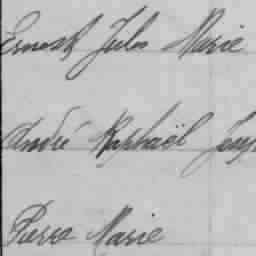 Ernest Jules Marie
André Raphaël
Pierre Marie